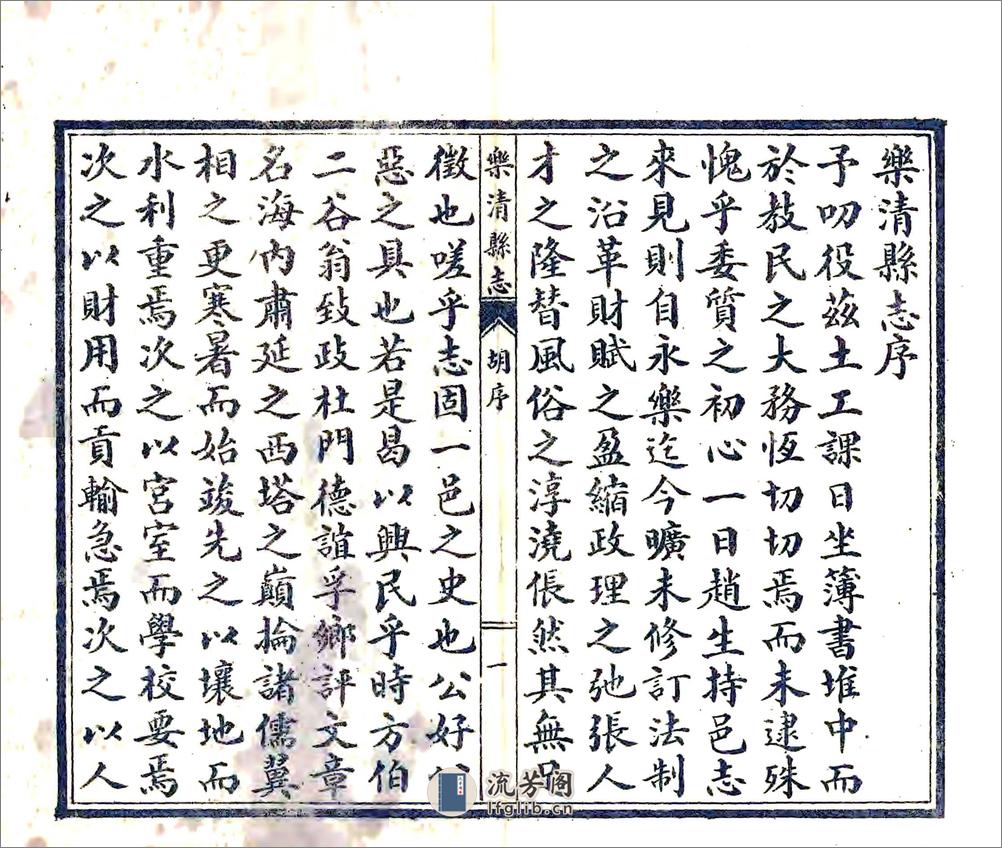 樂清縣志序
予叨役茲土工課日坐簿書堆中而
於教民之大務恆切切焉而未逮殊
愧乎委質之初心一日趙生持邑志
來見則自永樂迄今曠未修訂法制
之沿革財賦之盈縮政理之弛張人
才之隆替風俗之淳澆倀然其無
樂清縣志
胡序
一
徵也嗟乎志固一邑之史也公好
惡之具也若是曷以興民乎時方伯
二谷翁致政杜門德誼孚鄉評文章
名海內肅延之西塔之巔掄諸儒翼
相之更寒暑而始竣先之以壤地而
水利重焉次之以宮室而學校要焉
次之以財用而貢輸急焉次之以人
流芳阁
lfglib.cn